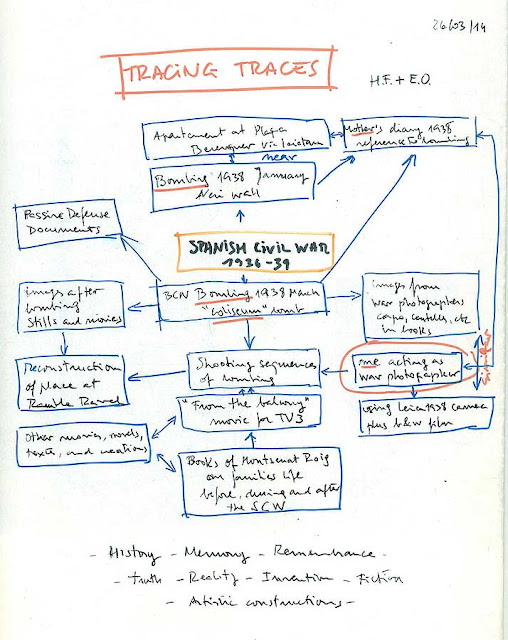 26/03/14
TRACING TRACES
H.F. + E.O.
Apartament at Plaça
Berenguer Via Laietana
near
Mother's diary 1938
reference to bombing
Bombing 1938 January
wall
Passive Defense
Documents
SPANISH CIVIL WAR
1936-39
Images after
bombing
Stills and movies
BCN Bombing 1938 March
"Coliseum" bomb
images from
war photographers
capa, centelles, etc
in books
Reconstruction
of place at
Rambla Raval
Shooting sequences
of bombing
me acting as
war photographer
"From the balcony"
movie for TV3
using Leica 1938 camera
plus b&w film
Other movies, novels,
texts, and creations
Books of Montserrat Roig
on families life
before, during and after
the SCW
- History - Memory - Remembrance -
- truth - Reality - Invention - Fiction
- Artistic constructions -